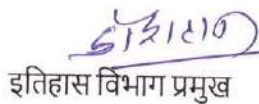 इतिहास विभाग प्रमुख